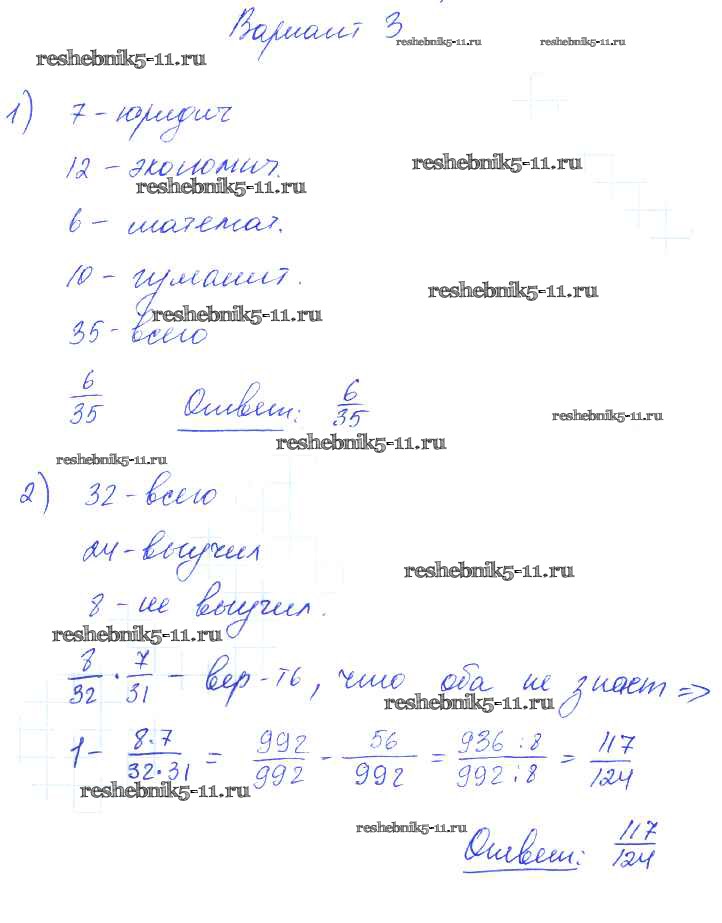 Вариант 3
reshebnik5-11.ru reshebnik5-11.ru
reshebnik5-11.ru
1) 7 - юридич
12 - экономич.
reshebnik5-11.ru
reshebnik5-11.ru
6 - математ.
10 - гуманит.
reshebnik5-11.ru
reshebnik5-11.ru
35 - всего
6/35 Ответ: 6/35
reshebnik5-11.ru
reshebnik5-11.ru
reshebnik5-11.ru
2) 32 - всего
24 - выучил
reshebnik5-11.ru
8 - не выучил.
reshebnik5-11.ru
8/32 · 7/31 - вер-ть, что оба не знает =>
reshebnik5-11.ru
1 - 8·7/32·31 = 992/992 - 56/992 = 936:8/992:8 = 117/124
reshebnik5-11.ru
reshebnik5-11.ru
Ответ: 117/124